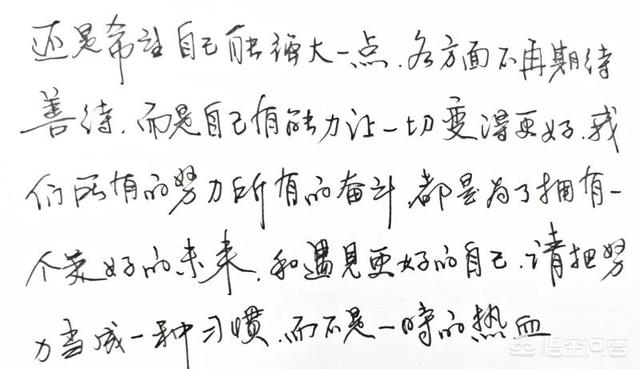 还是希望自己能强大一点.各方面不再期待
善待.而是自己有能力让一切变得更好.我
们所有的努力所有的奋斗.都是为了拥有一
个美好的未来.和遇见更好的自己.请把努
力当成一种习惯.而不是一时的热血
悟空问答